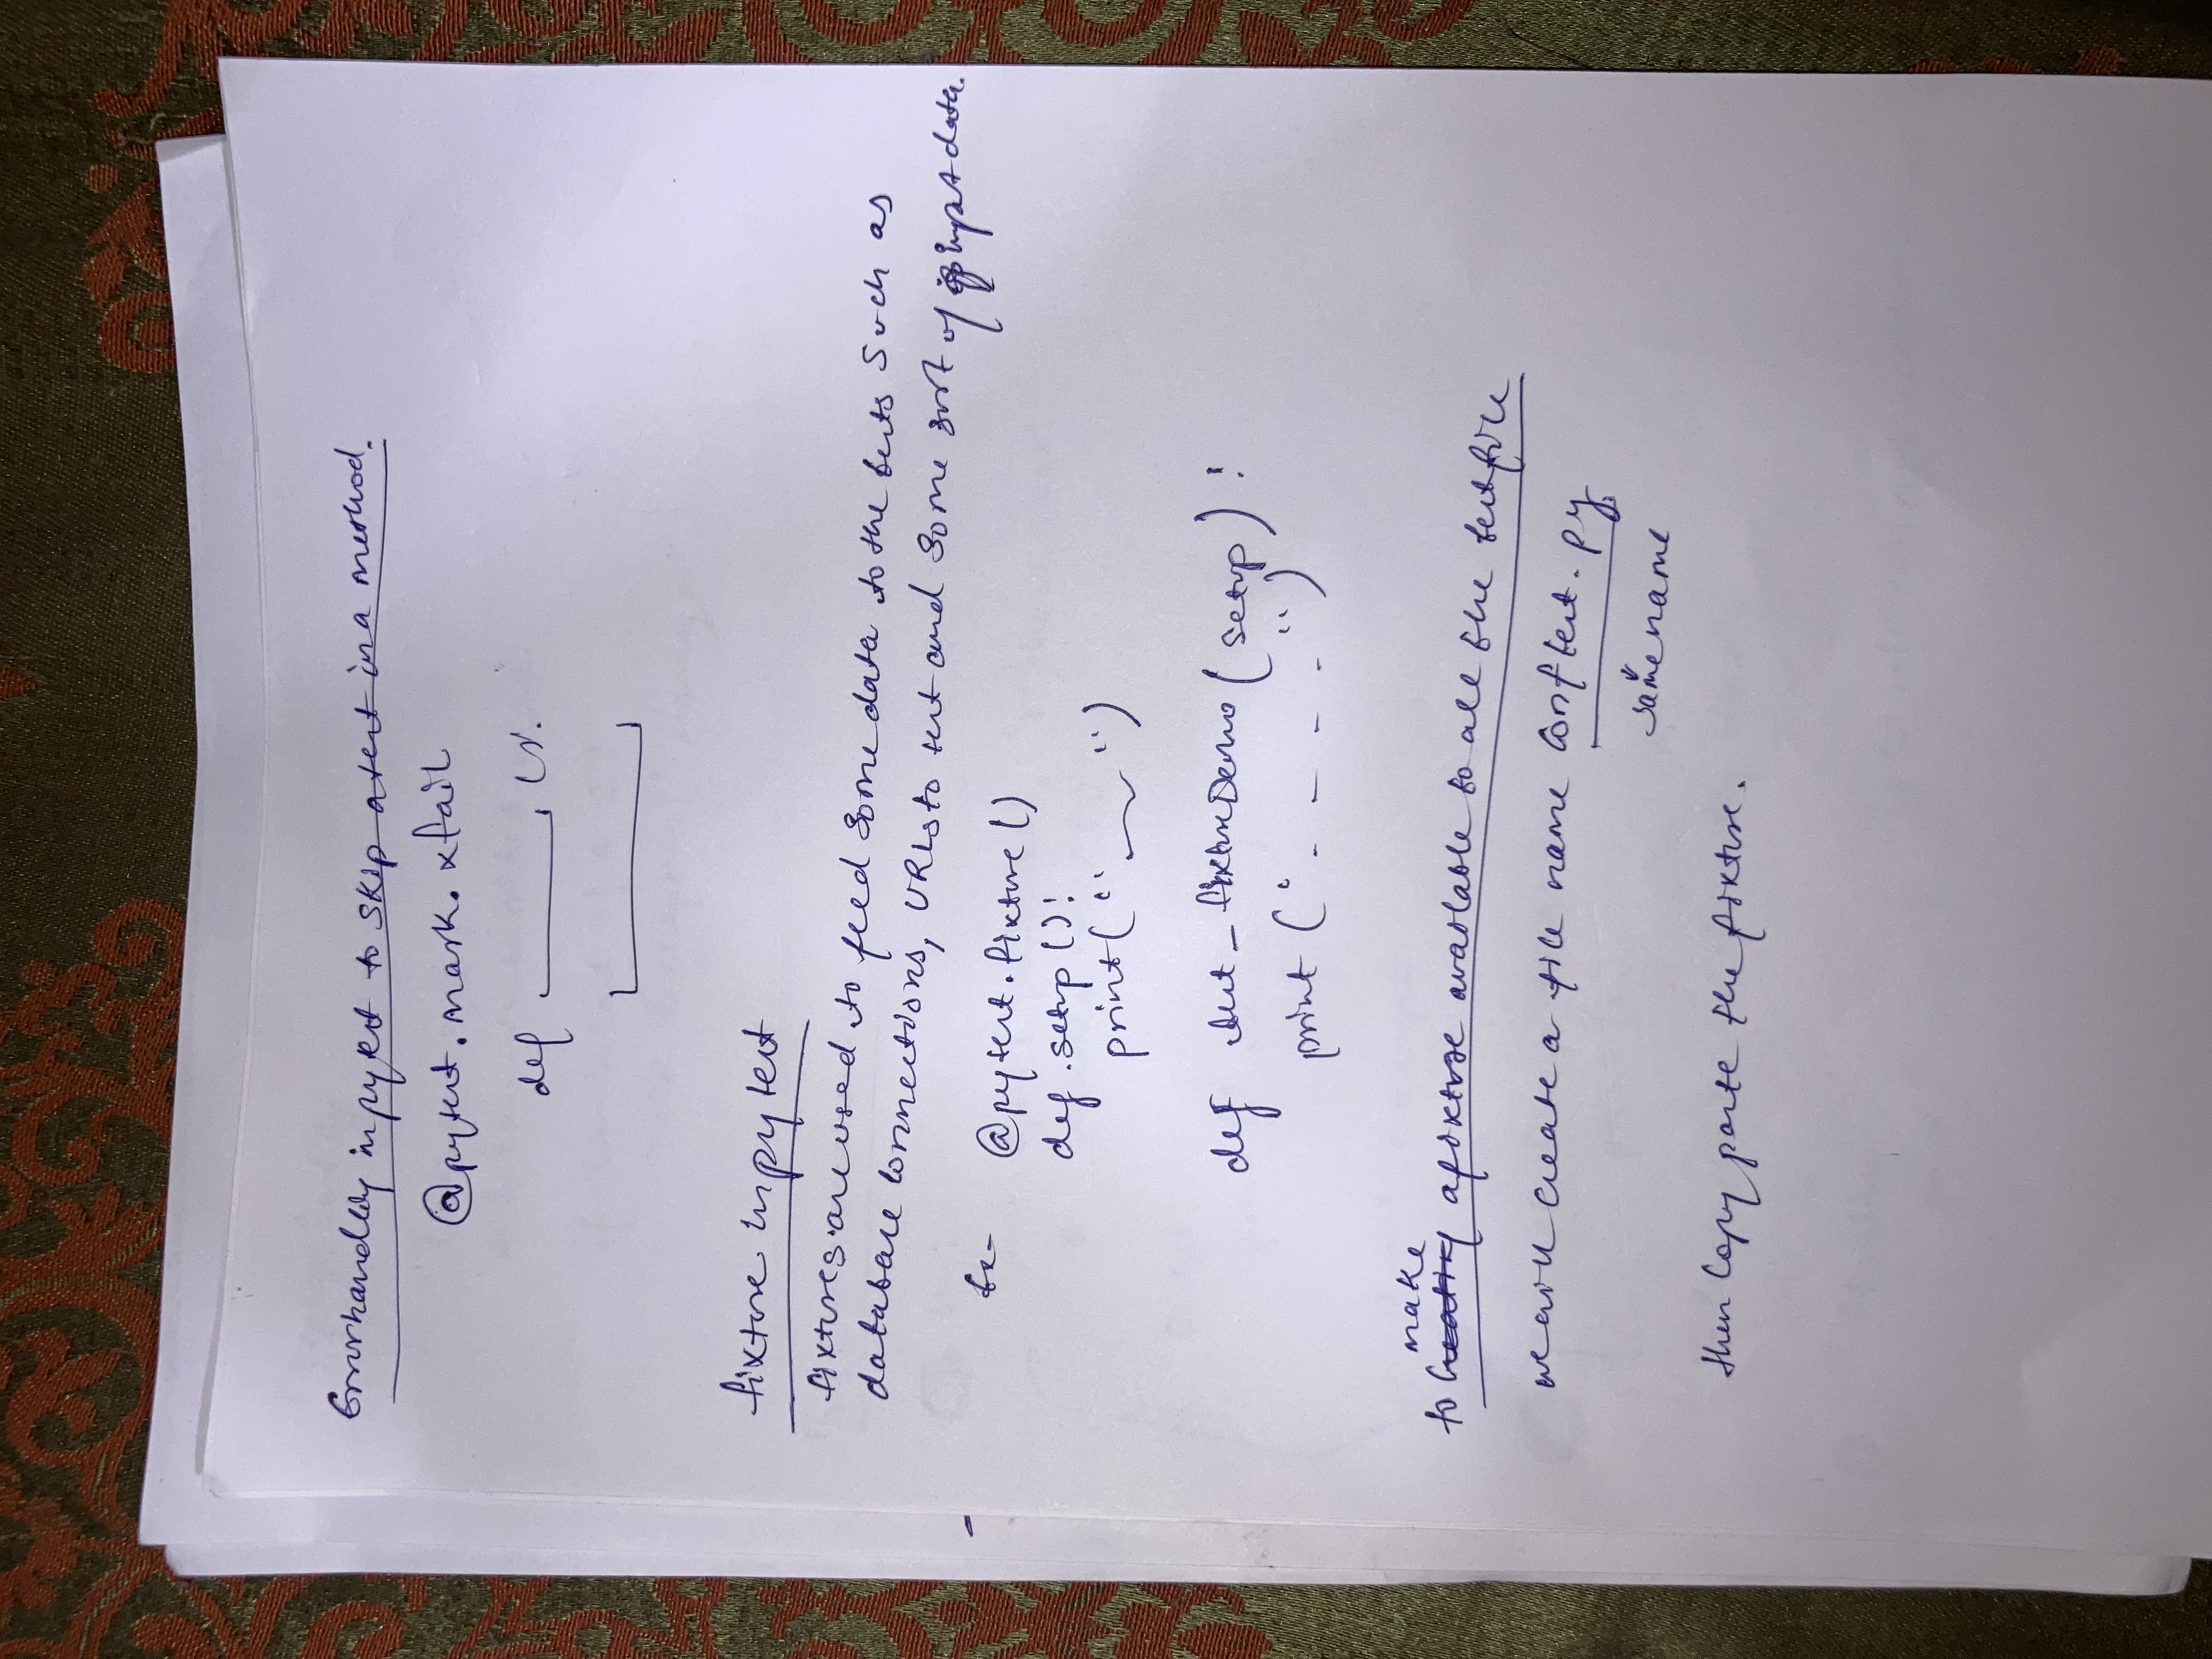 Errorhandling in pytest to skip a test in a method.
@pytest.mark.xfail
def ():
fixture in pytest
fixtures are used to feed some data to the tests such as
database connections, URLs to test and some sort of input data.
Ex-
@pytest.fixture()
def setup():
print(" ")
def test_fixtureDemo(setup):
print (" - - - - ")
make
to creating a fixture available to all the test file
we will create a file name conftest.py
same name
then copy paste the fixture.